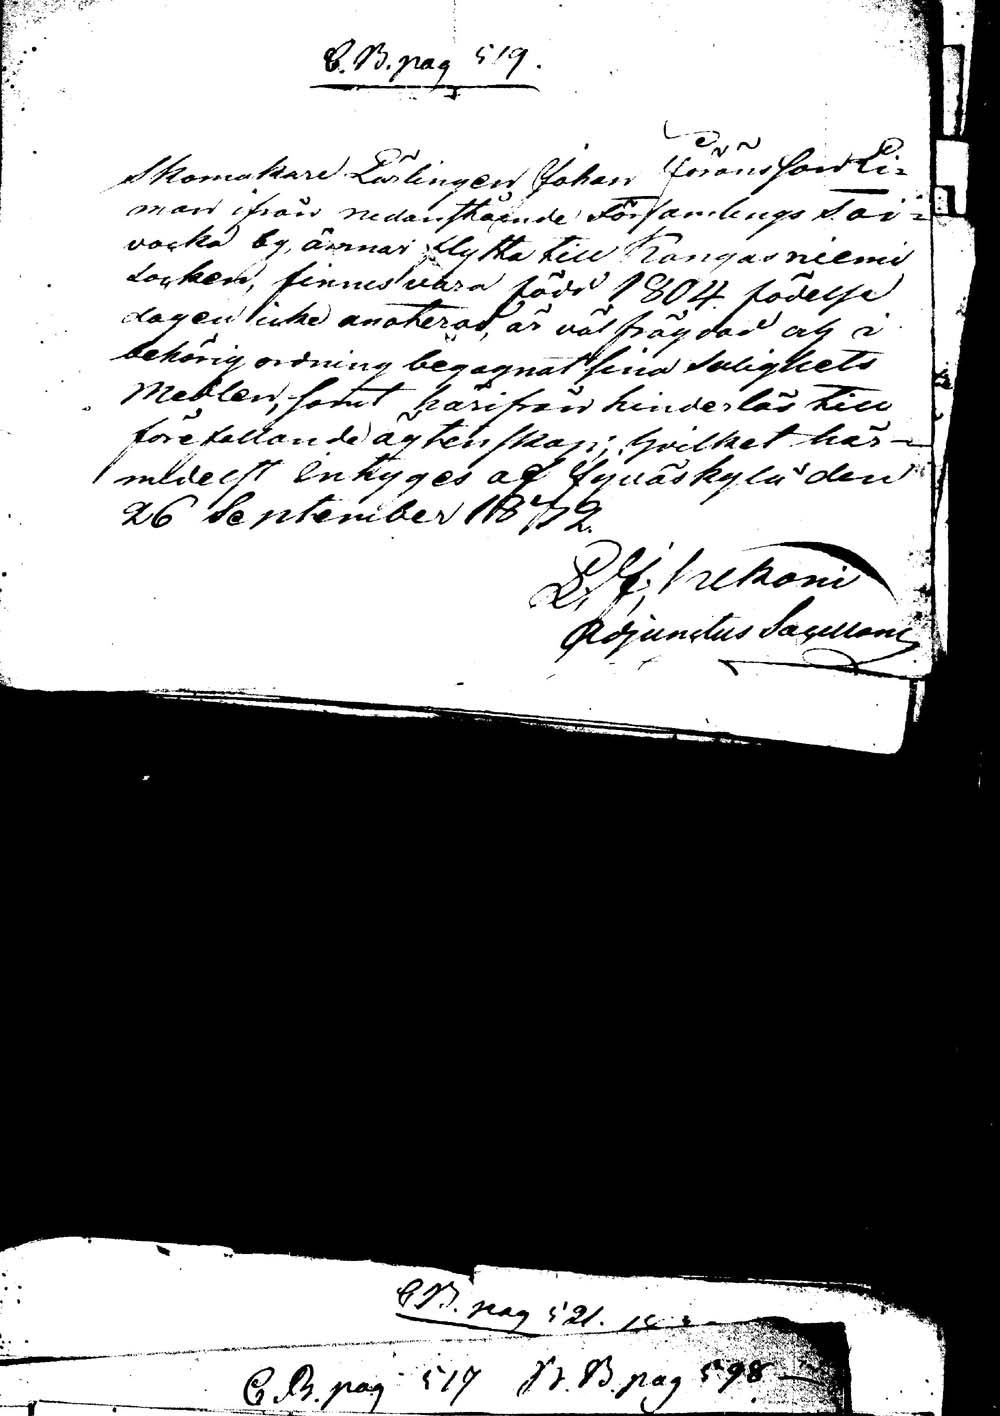 C. B. pag 519.
Skomakare Lärlingen Johan Göransson Li=
man ifrån nedanstående Församlings Toi=
vacka by, ämnar flytta till Kangasniemi
Socken, finnes vara född 1804 födelse
dagen icke anoterad, är väl frägdad och i
behörig ordning begagnat sina salighets
Medlen, samt härifrån hinderlös till
förefallande ägtenskap; hvilket här-
medelst intyges af Jyväskylä den
26 September 1872.
Adjunctus Sacellani
C. B. pag 521.
C. B. pag 517 N. B. pag 598